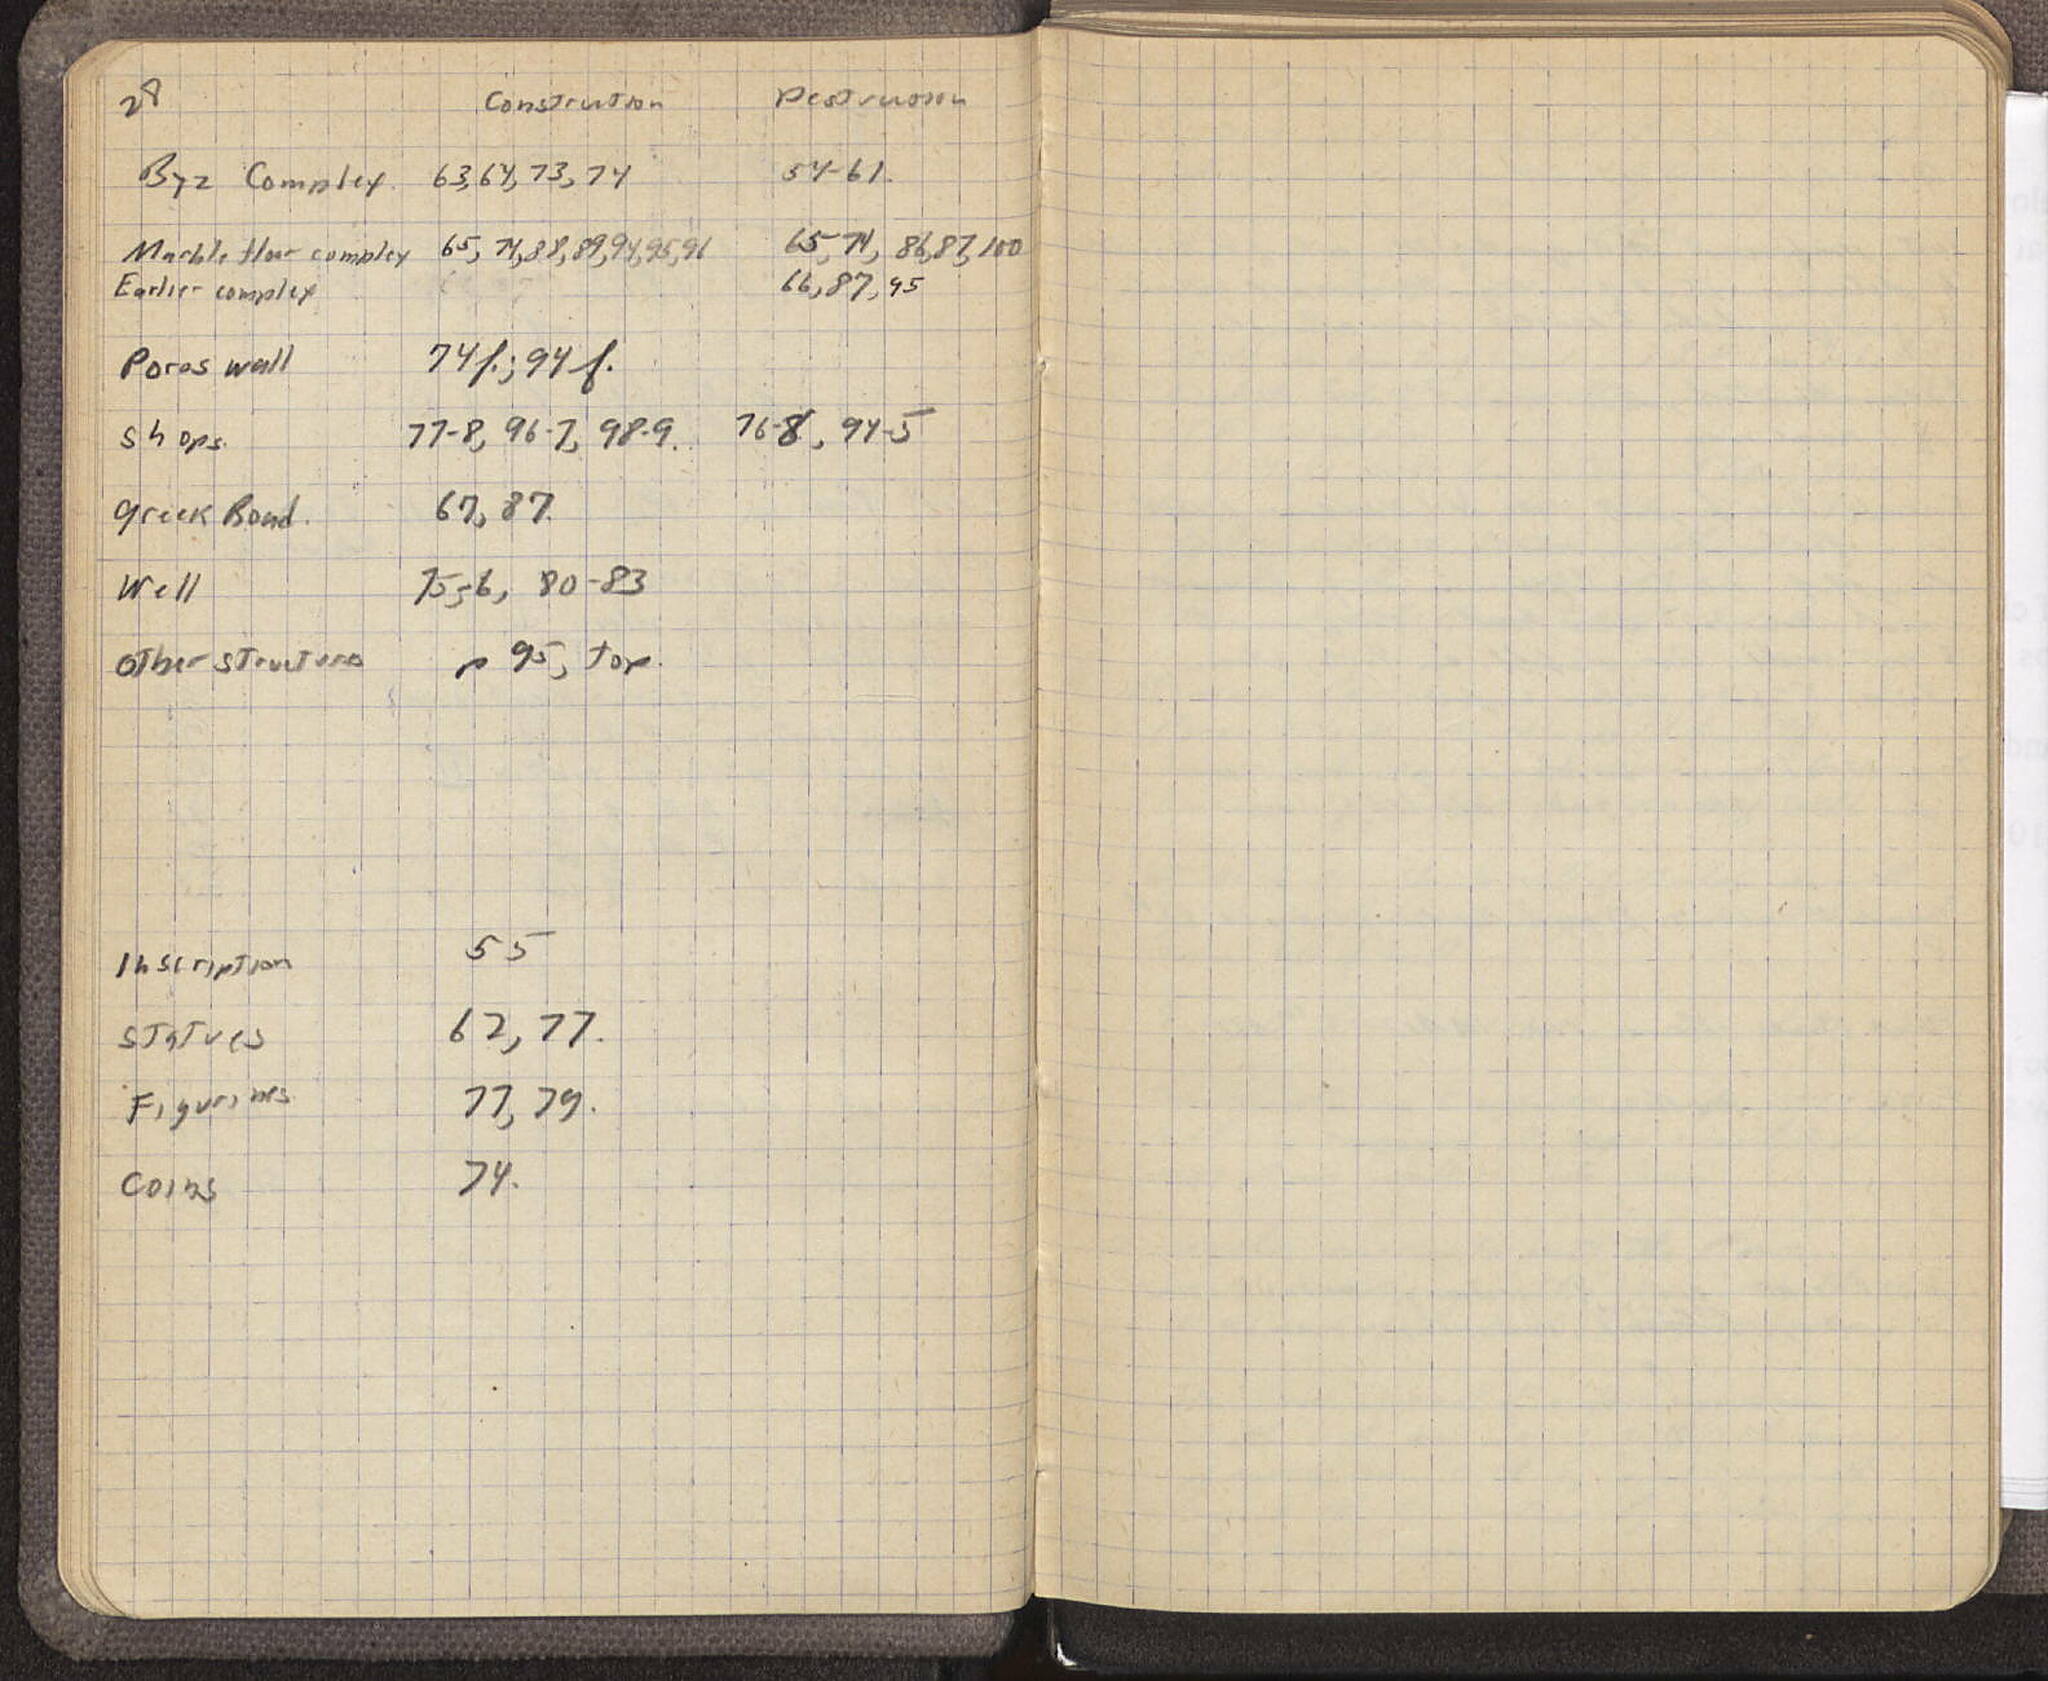 28 Construction Destruction
Byz Complex. 63, 64, 73, 74 54-61.
Marble floor complex 65, 74, 88, 89, 94, 95, 96 65, 74, 86, 87, 100
Earlier complex 66, 87, 95
Poros wall 74 f.; 94 f.
Shops. 77-8, 96-7, 98-9. 76-8, 94-5
Greek Road. 67, 87.
Well 75-6, 80-83
Other structures p 95, top.
Inscription 55
Statues 62, 77.
Figurines 77, 79.
Coins 74.